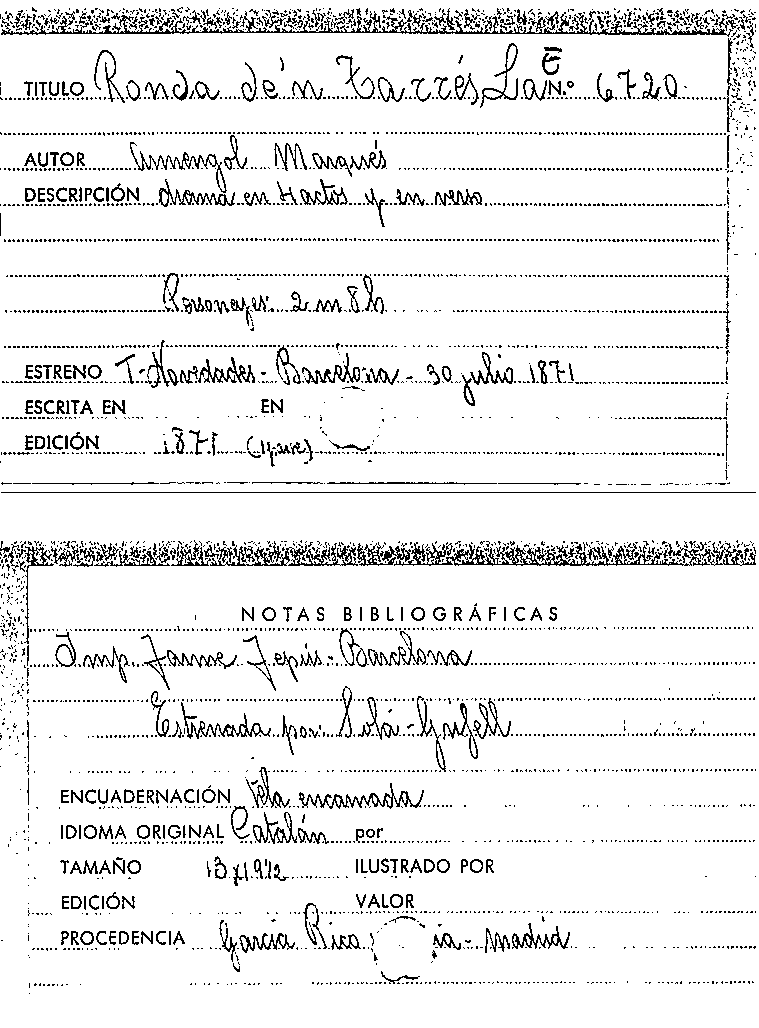 TITULO Ronda de'n Tarrés, La E N.º 6720
AUTOR Armengol Marqués
DESCRIPCIÓN drama en 4 actos y en verso
Personajes: 2 m 8 h
ESTRENO T. Novedades - Barcelona - 30 julio 1871
ESCRITA EN EN
EDICIÓN 1871
NOTAS BIBLIOGRÁFICAS
Imp. Jaume Jepús - Barcelona
Estrenada por: Solá - Grifell
ENCUADERNACIÓN tela encarnada
IDIOMA ORIGINAL Catalán por
TAMAÑO ILUSTRADO POR
EDICIÓN VALOR
PROCEDENCIA García Rico ia - Madrid